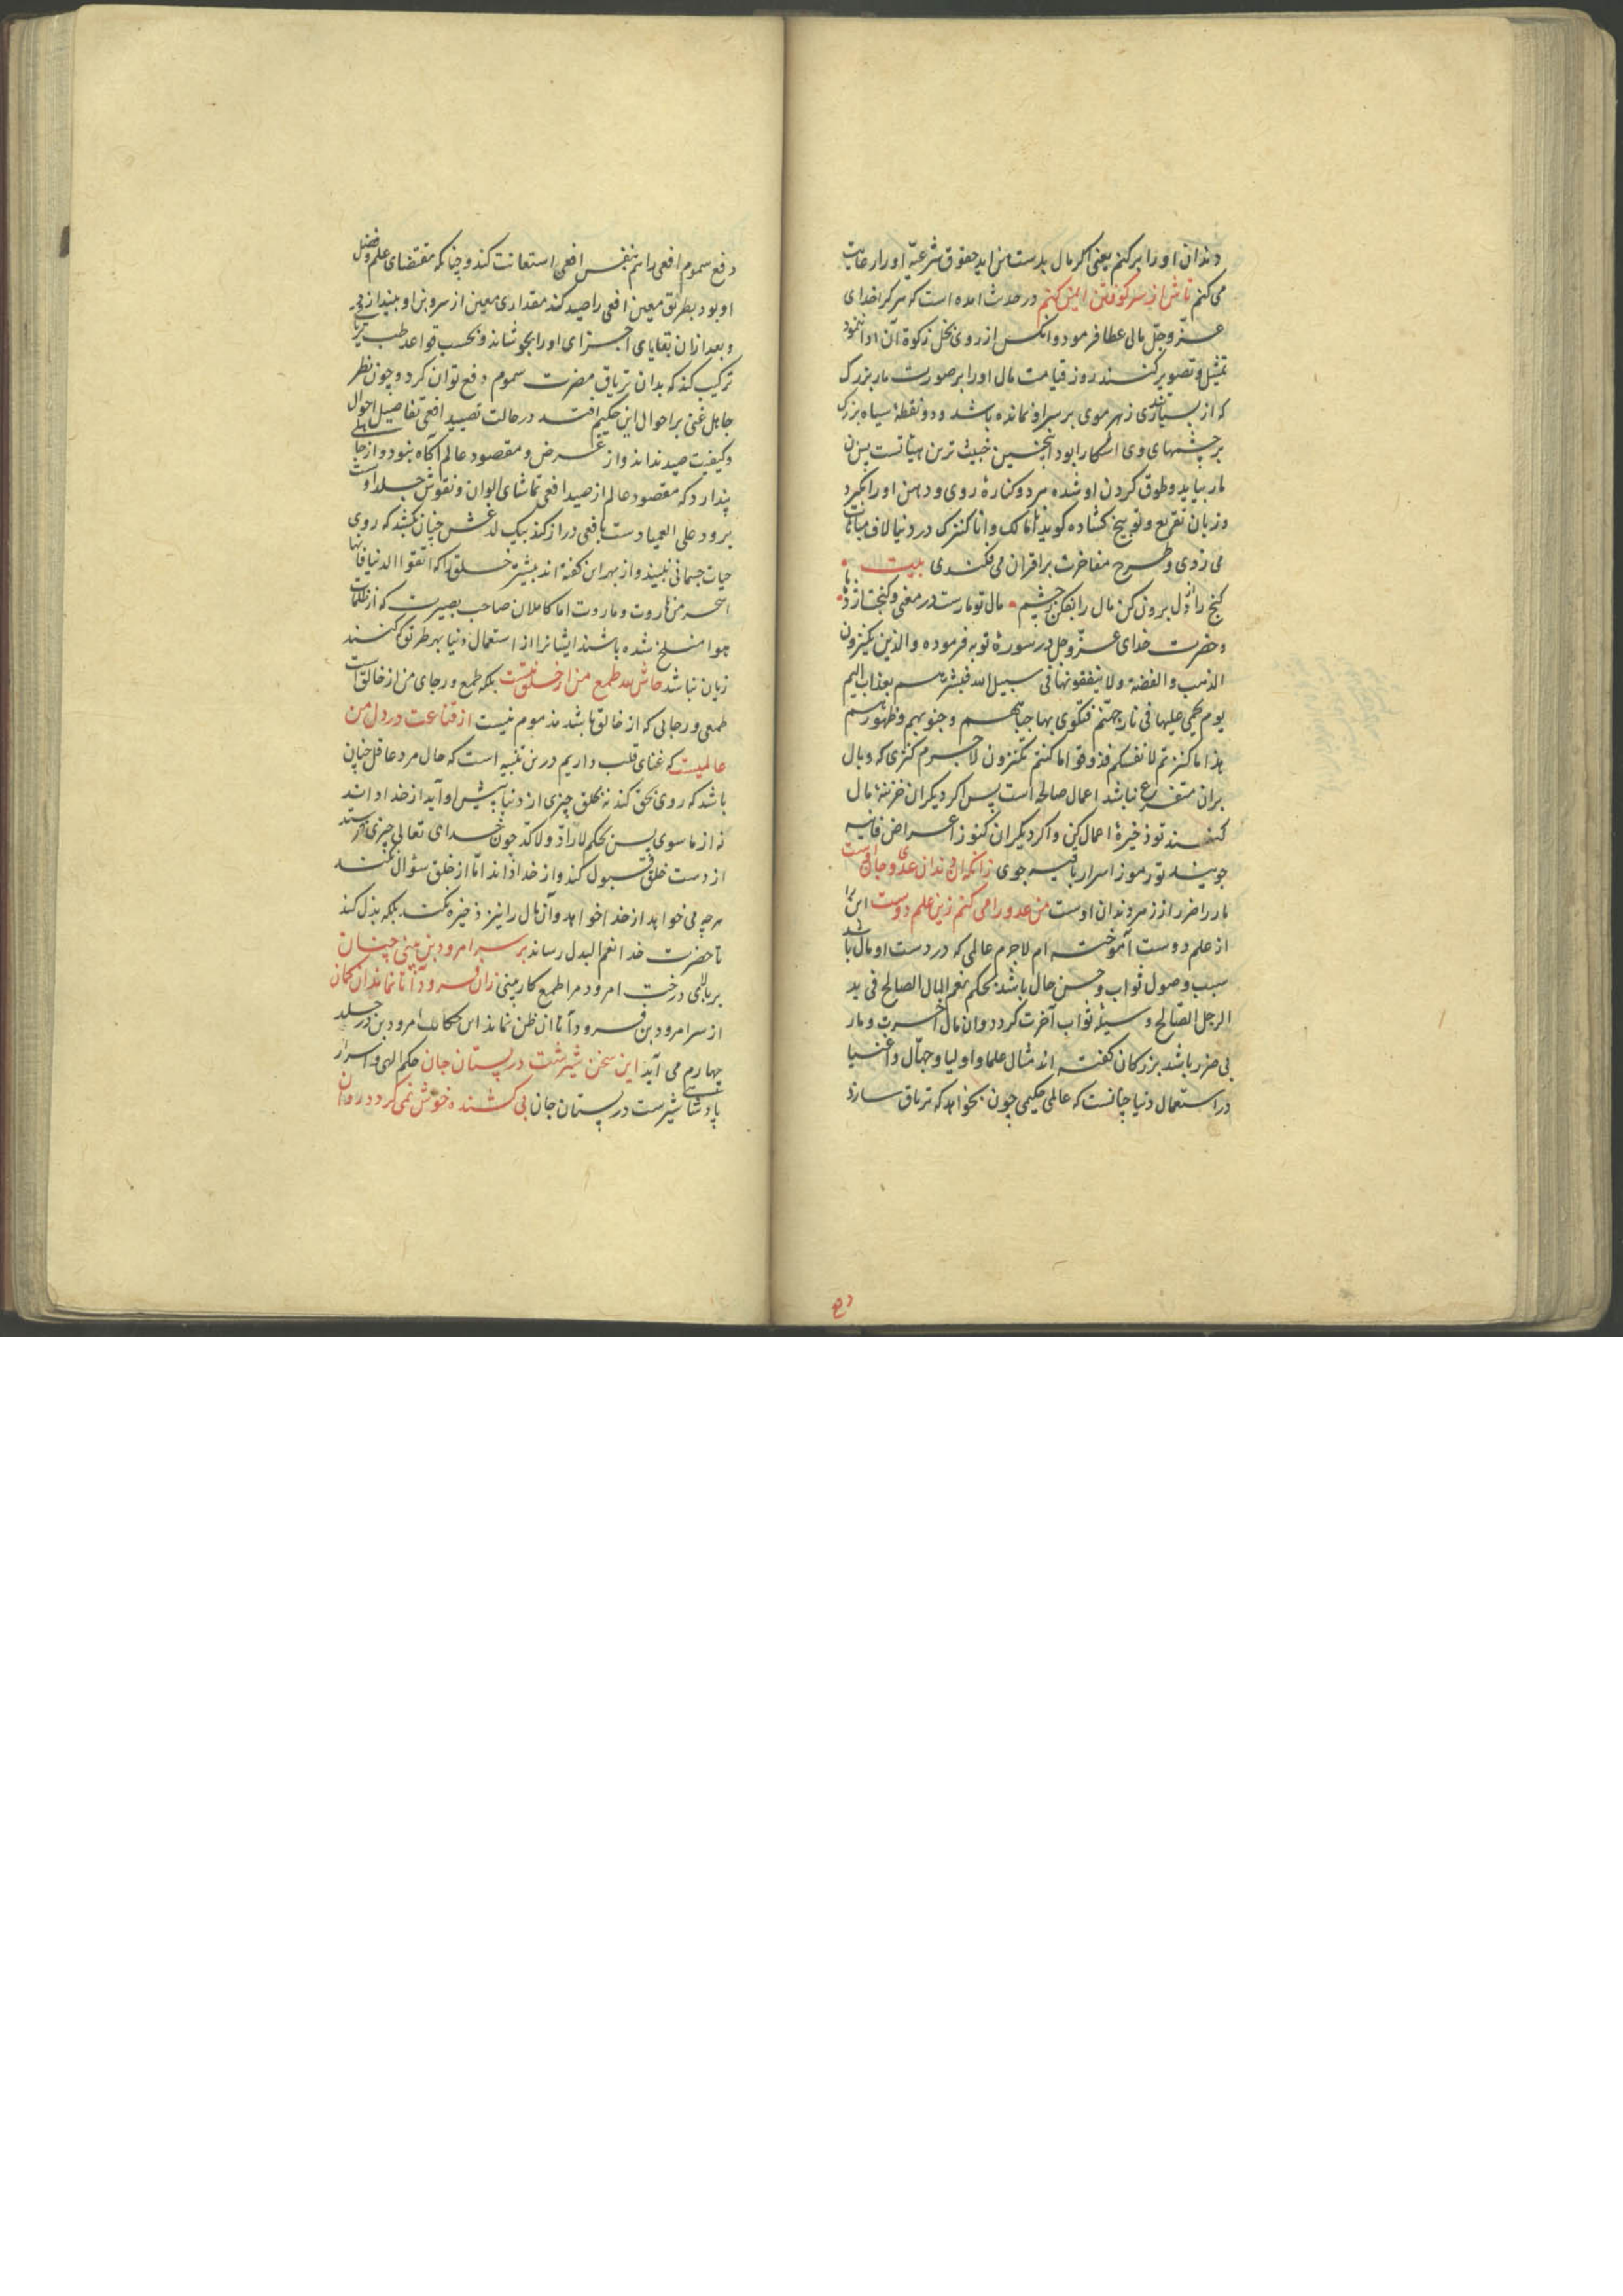 دندان اورا برکنم یعنی اکر مال بدست من اید حقوق شرعیّه اورا رعایت
می کنم تاش از سر کوفتن ایمن کنم در حدیث امده است که هرکرا خدای
عزّ وجلّ مالی عطا فرمود و انکس از روی بخل زکوة آن ادا ننمود
تمثیل و تصویر کنند روز قیامت مال اورا بر صورت مار بزرک
که از بسیاری زهر موی بر سر او نمانده باشد و دو نقطهٔ سیاه بزرک
بر چشمهای وی اشکارا بود اینچنین خبیث ترین هیأتست پس ان
مار بیاید و طوق کردن او شده هر دو کنارهٔ روی و دهن اورا بکیرد
و زبان تقریع و توبیخ کشاده کوید انا مالک و انا کنزک در دنیا لاف مباهات
می زدی و طرح مفاخرت بر اقران می فکندی بیت
کنج را از دل برون کن مال را بفکن ز چشم مال تو مارست در معنی و کنجت اژدها
و حضرت خدای عزّ وجل در سورهٔ توبه فرموده والذین یکنزون
الذهب والفضة ولا ینفقونها فی سبیل الله فبشرهم بعذاب الیم
یوم یحمی علیها فی نار جهنّم فتکوی بها جباههم وجنوبهم وظهورهم
هذا ما کنزتم لانفسکم فذوقوا ما کنتم تکنزون لاجرم کنزی که وبال
بران متفرع نباشد اعمال صالحه است پس اکر دیکران خزینهٔ مال
کنند تو ذخیرهٔ اعمال کن و اکر دیکران کنوز اعراض فانیه
جویند تو رموز اسرار باقیه جوی زانکه ان دندان عدوی جان اوست
مار را ضرر از زهر دندان اوست من عدو را می کنم زین علم دوست این را
از علم دوست آموخته ام لاجرم عالمی که در دست او مال باشد
سبب وصول ثواب و حسن حال باشد بحکم نعم المال الصالح فی ید
الرجل الصّالح وسیلهٔ ثواب آخرت کردد و ان مال اخرت و مار
بی ضرر باشد بزرکان کفته اند مثال علما و اولیا و جهّال و اغنیا
در استعمال دنیا چنانست که عالمی حکیمی چون بخواهد که تریاق سازد
دفع سموم افعی را هم بنفس افعی استعانت کند و چنانکه مقتضای علم و فضل
او بود بطریق معین افعی را صید کند مقداری معین از سر و بن او بیندازد
و بعد ازان بقایای اجزای اورا بجوشاند و بحسب قواعد طب تریاقی
ترکیب کند که بدان تریاق مضرت سموم دفع توان کرد و چون نظر
جاهل غبی بر احوال این حکیم افتد در حالت تصیید افعی تفاصیل احوال
و کیفیت صید نداند و از غرض و مقصود عالم آکاه نبود و از جاهلی
پندارد که مقصود عالم از صید افعی تماشای الوان و نقوش جلد اوست
برود علی العمیا دست بافعی دراز کند بیک لدغش چنان بکشد که روی
حیات جسمانی نبیند و از بهر این کفته اند بیشتر خلق را که اتقوا الدنیا فانها
اسحر من هاروت و ماروت اما کاملان صاحب بصیرت که از ظلمات
هوا منسلخ شده باشند ایشانرا از استعمال دنیا بهر طریق که کنند
زیان نباشد حاش لله طمع من از خلق نیست بلکه طمع و رجای من از خالق است
طمعی و رجائی که از خالق باشد مذموم نیست از قناعت در دل من
عالمیست که غنای قلب داریم درین تنبیه است که حال مرد عاقل چنان
باشد که روی بحق کند نه بخلق چیزی از دنیا پیش او آید از خدا داند
نه از ماسوی پس بحکم لا رادّ ولا کدّ چون خدای تعالی چیزی فرستد
از دست خلق قبول کند و از خدا داند امّا از خلق سؤال نکند
هرچه می خواهد از خدا خواهد و آن مال را نیز ذخیره نکند بلکه بذل کند
تا حضرت خدا نعم البدل رساند بر سر امرود بن بینی چنان
بر بالای درخت امرود مرا طمع کار بینی زان فرود آ تا نماند ان کمان
از سر امرود بن فرود آ تا ان ظن نماند این حکایت امرود بن در جلد
چهارم می آید این سخن شیرست در پستان جان حکم الهی و اسرار
پادشاهی شیرست در پستان جان بی کشنده خوش نمی کردد روان